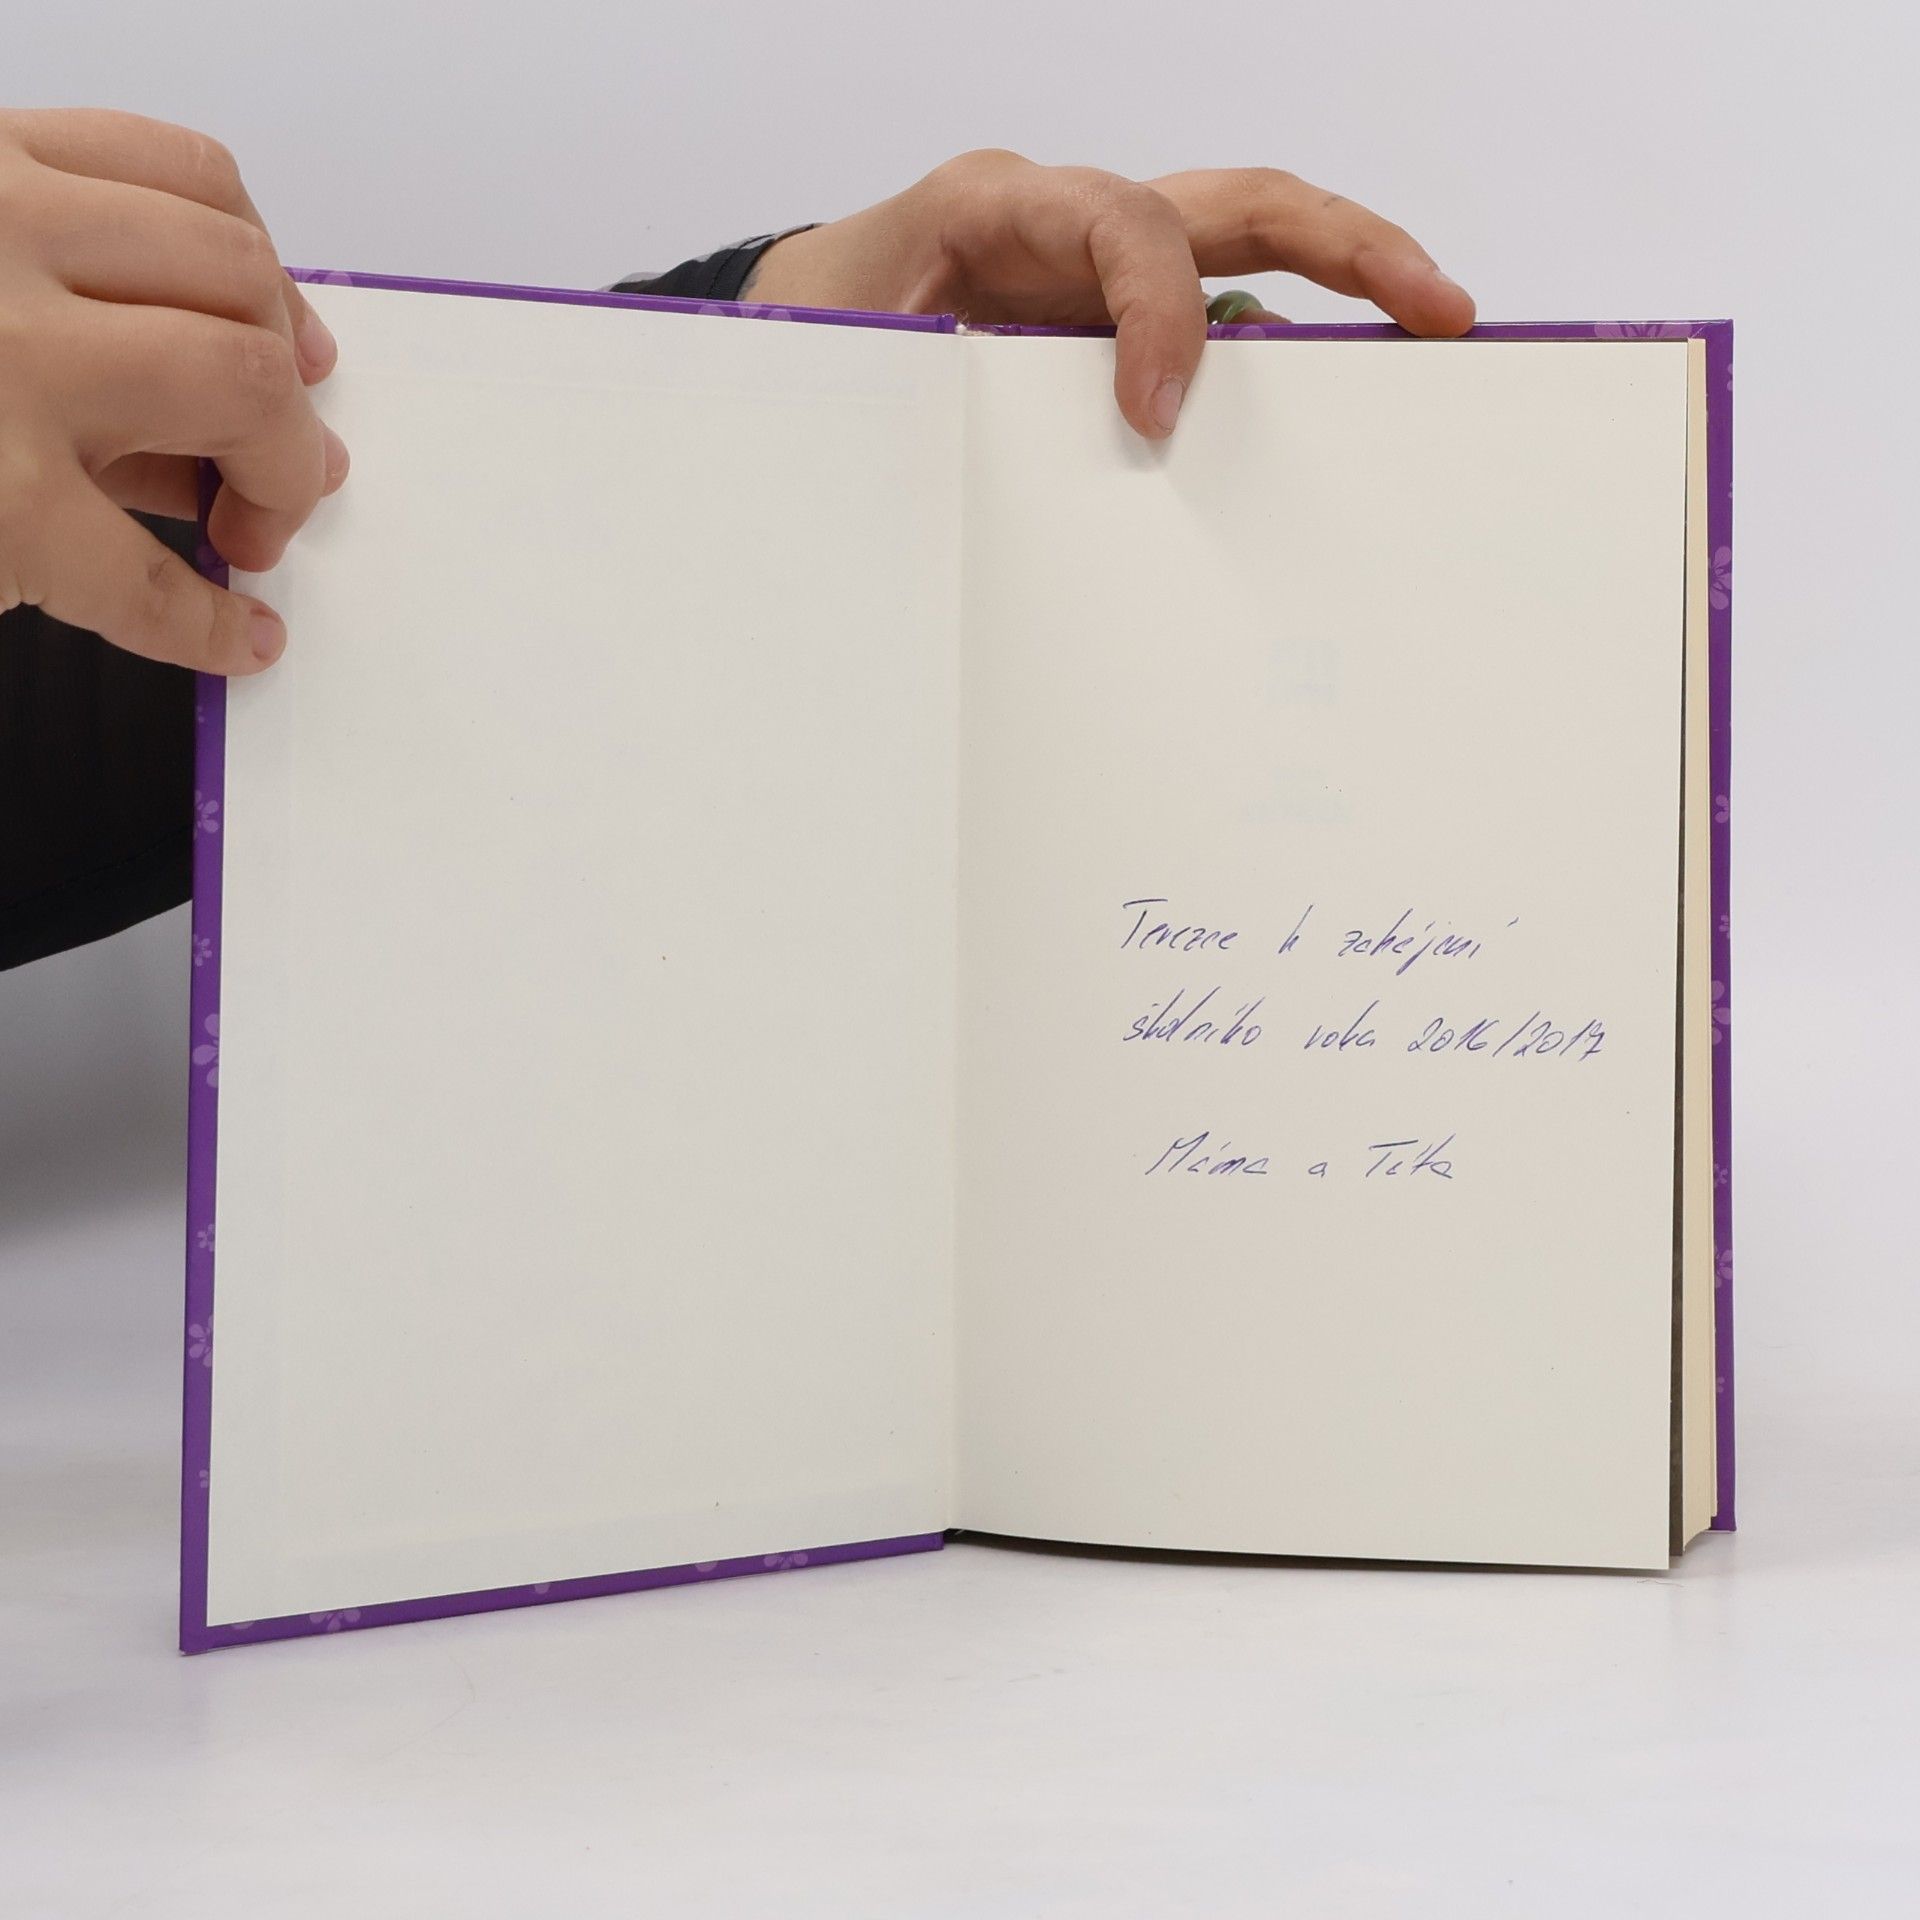 Terezce k zahájení
školního roku 2016/2017
Máma a Táta